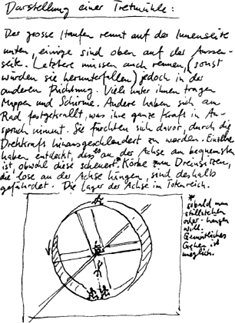 Darstellung einer Tretmühle:
Der grosse Haufen rennt auf der Innenseite
unten, einige sind oben auf der Aussen-
seite. Letztere müssen auch rennen, (sonst
würden sie herunterfallen) jedoch in der
anderen Richtung. Viele unter ihnen tragen
Mappen und Schirme. Andere haben sich am
Rad festgekrallt, was ihre ganze Kraft in An-
spruch nimmt. Sie fürchten sich davor, durch die
Drehkraft hinausgeschleudert zu werden. Einzelne
haben entdeckt, dass es an der Achse am bequemsten
ist, obwohl diese scheuert. Körbe zum Dreinsitzen,
die lose an der Achse hängen, sind deshalb
gefährdet. Die Lager der Achse im Totenreich.
* sobald man
stillstehen
oder -hängen
will.
Gemütliches
Gehen ist
möglich.